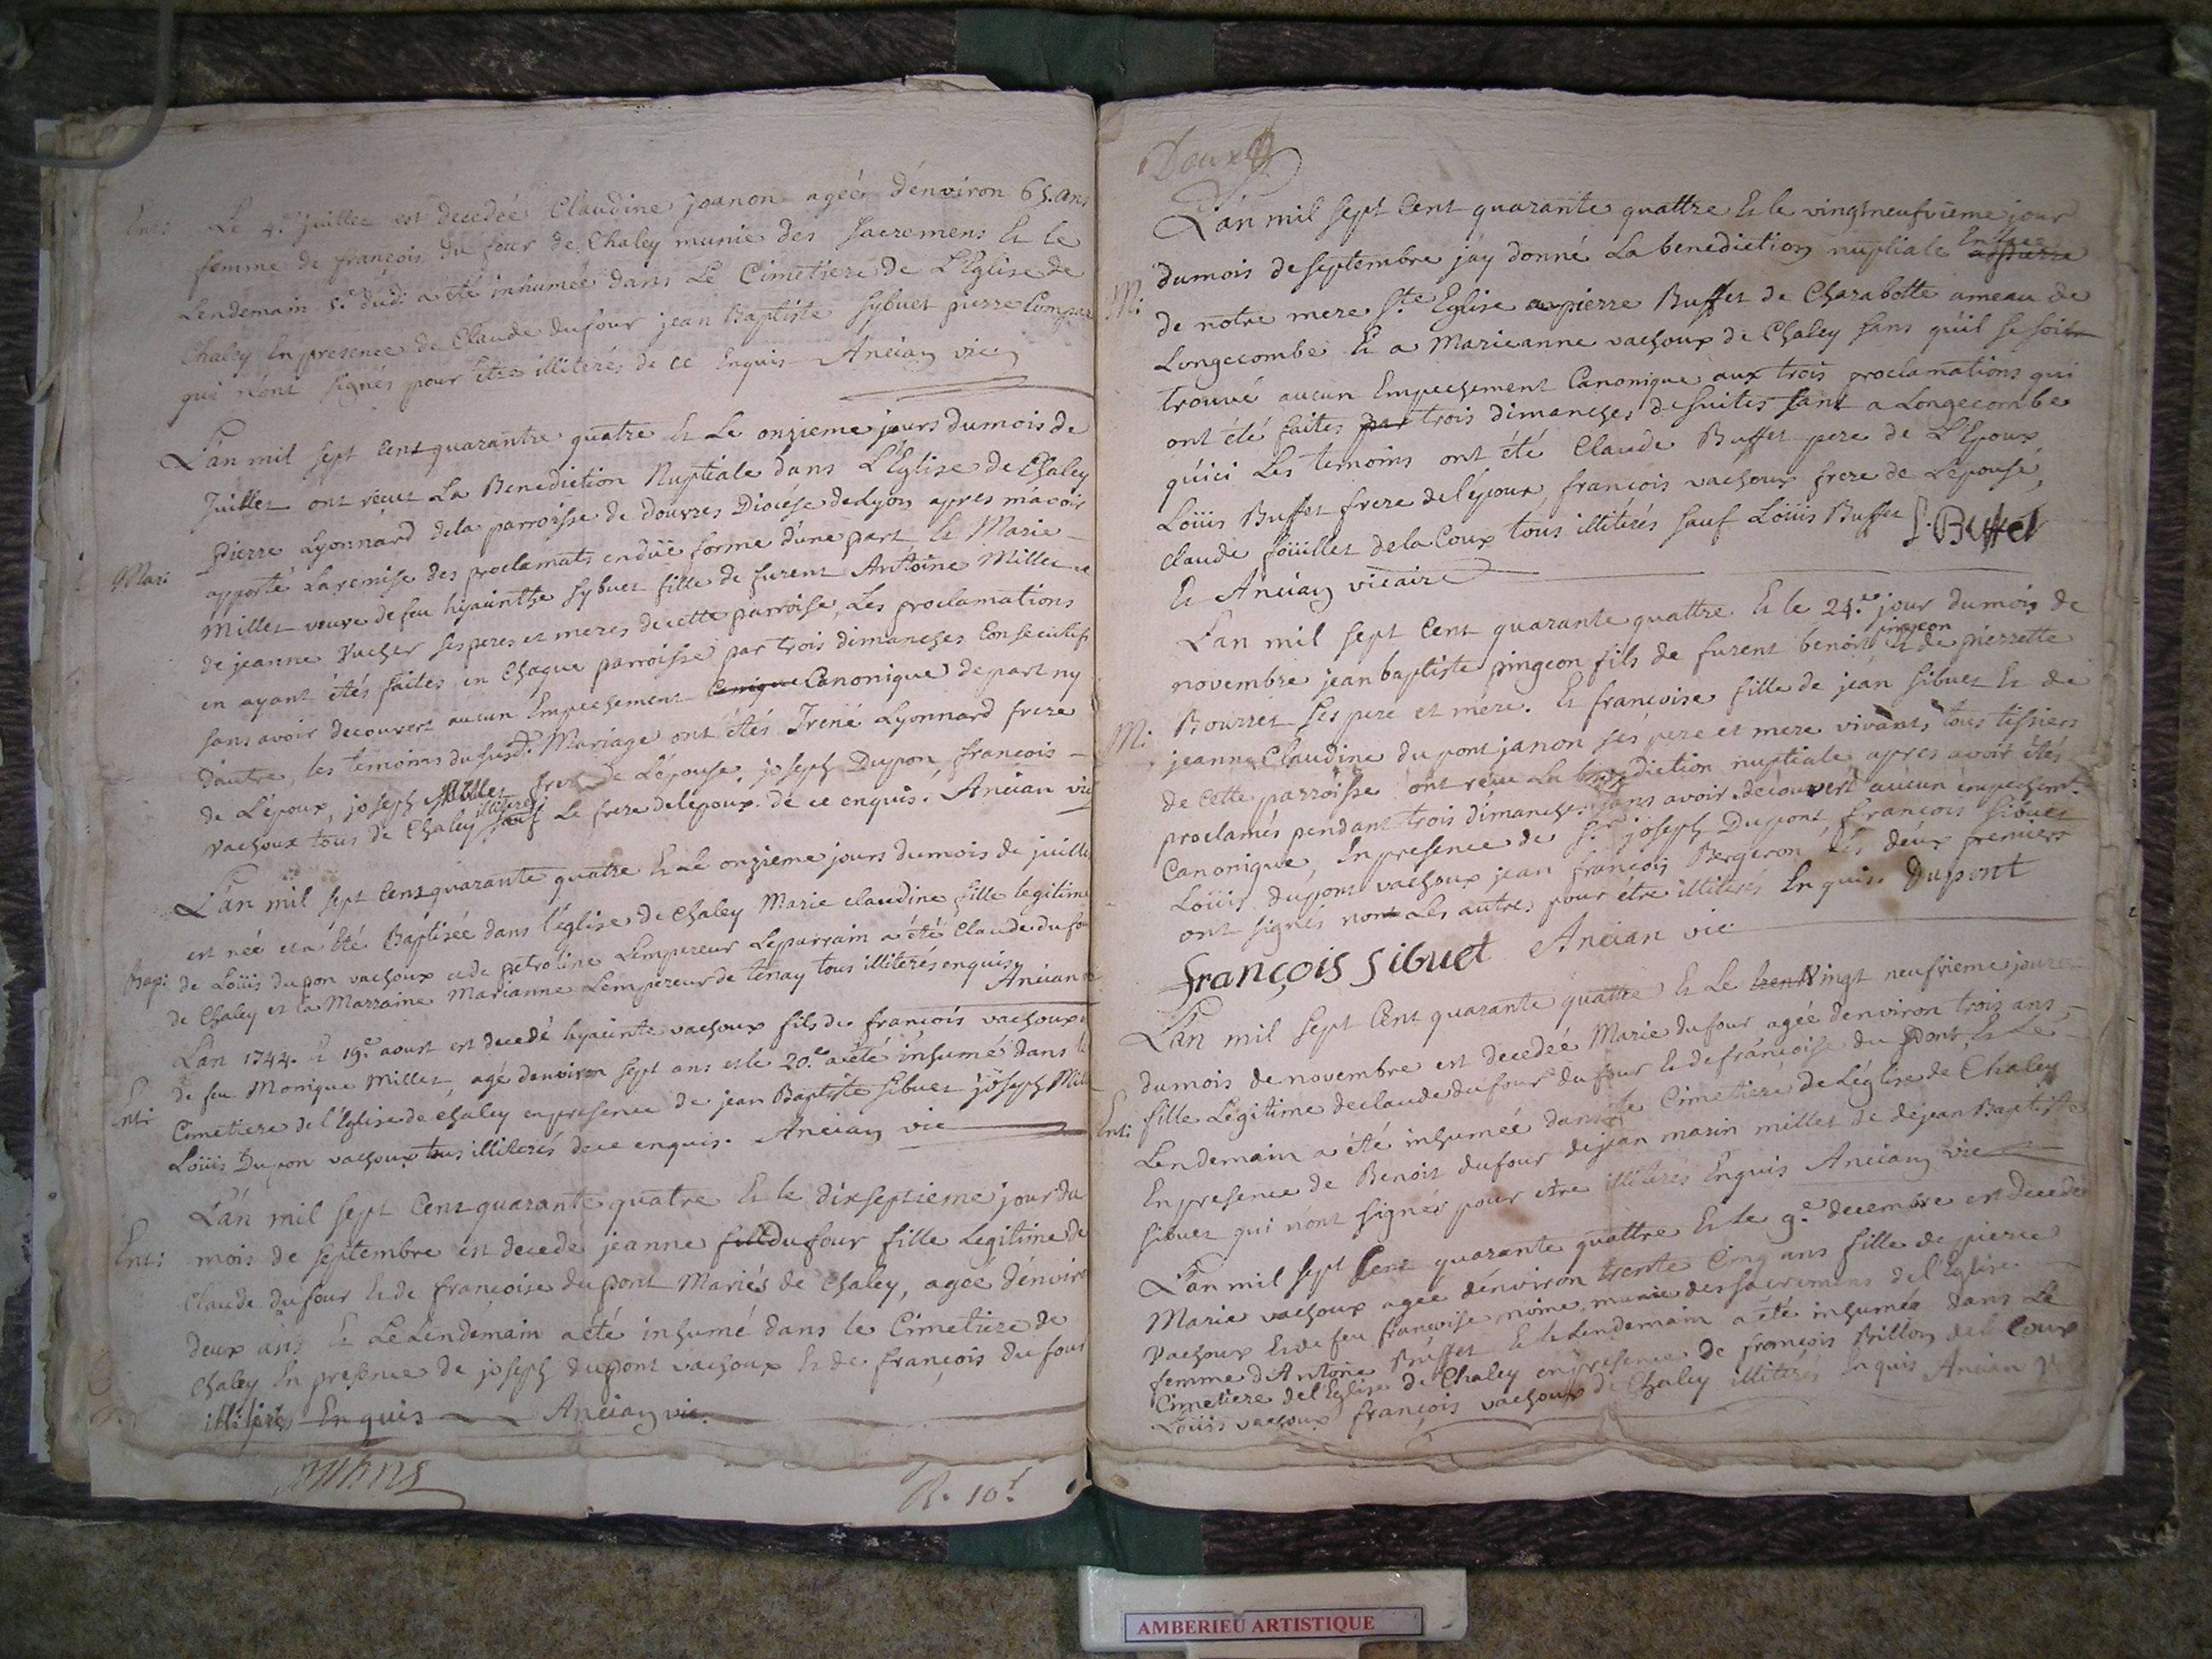 Ent: Le 4.e Juillet est decedée Claudine joanon agéé d'environ 65. ans
femme de françois du four de Chaley munie des sacremens Et le
Lendemain 5.e dudi a été inhumée dans Le Cimetiere de L'Eglise de
Chaley En presence de Claude dufour jean Baptiste sybuet pierre
qui n'ont signés pour être illiterés de ce Enquis Ancian vic
L'an mil sept Cent quarantre quatre Et Le onzieme jours du mois de
Juillet ont reçut La Benediction Nuptiale dans L'Eglise de Chaley
pierre Lyonnard de la parroisse de douvres Diocése de Lyon apres m'avoir
Mari apporté La remise des proclamats en düe forme d'une part Et Marie
Millet veuve de feu hyacinthe sybuet fille de furent Antoine Millet et
de jeanne Vucher ses peres et meres de cette parroise, Les proclamations
en ayant étés faites en Chaque parroisse par trois dimanches Consecutifs
sans avoir decouvert aucun Empechement Canonique de part ny
d'autre, les temoins du susd.t Mariage ont étés Irené Lyonnard frere
de L'époux, joseph Millet frere de L'épouse, joseph Dupon, francois
vachoux tous de Chaley illiterés sauf Le frere de lepoux de ce enquis. Ancian vic
L'an mil sept Cent quarante quatre Et Le onzieme jours du mois de juillet
est née et a Eté Baptisée dans l'église de Chaley Marie claudine fille legitime
Bap: de Loüis dupon vachoux et de petroline Lempereur Le parrain a été Claude du four
de Chaley et la Marraine Marianne Lempereur de tenay tous illiterés enquis Ancian
L'an 1744. Et 19.e aoust est decedé hyacinte vachoux fils de françois vachoux
Ent: de feu Monique Millet, agé d'environ sept ans et le 20.e a été inhumé dans le
Cimetiere de l'Eglise de Chaley en presence de jean Baptiste sibuet joseph Millet
Loüis Dupon vachoux tous illiterés de ce enquis. Ancian vic
L'an mil sept Cent quarante quatre Et le dix septieme jour du
Ent: mois de septembre est decede jeanne fille dufour fille Legitime de
Claude du four Et de françoise du pont Mariés de Chaley, agée d'environ
deux ans Et Le Lendemain a été inhumé dans le Cimetiere de
Chaley En presence de joseph dupont vachoux Et de françois du four
illiterés Enquis Ancian vic.
R. 10
L'an mil sept Cent quarante quattre Et le vingtneufvieme jour
du mois de septembre j'ay donné La benediction nuptiale Entre
M: de notre mere S.te Eglise a pierre Buffet de Charabotte ameau de
Longecombe Et a Marieanne vachoux de Chaley sans qu'il se soit
trouvé aucun Empechement Canonique aux trois proclamations qui
ont été faites par trois dimanches de suites tant a Longecombe
qu'ici Les temoins ont été Claude Buffet pere de L'Epoux
Loüis Buffet frere de l'époux, françois vachoux frere de L'epousé,
claude foüillet de la Coux tous illiterés sauf Loüis Buffet L. Buffet
Et Ancian vicaire
L'an mil sept Cent quarante quattre Et le 24.e jour du mois de
novembre jean baptiste pingeon fils de furent benoit pingeon Et de pierrette
M: Bourret ses pere et mere. Et françoise fille de jean sibuet Et de
jeanne Claudine du pont janon sés pere et mere vivants, tous tissiers
de cette parroisse ont reçue La benediction nuptiale apres avoir étés
proclamés pendant trois dimanch. sans avoir découvert aucun empechem.t
Canonique, En presence de S.r joseph Dupont, françois sibuet
Loüis dupont vachoux jean françois Bergeron, Les deux premiers
ont signés non Les autres pour être illiterés Enquis. Dupont
françois sibuet Ancian vic
L'an mil sept Cent quarante quattre Et Le trent Vingt neufvieme jour
du mois de novembre est decedée Marie du four agéé d'environ trois ans
fille Légitime de claude du four du four Et de françoise du Pont, Et Le
Ent: Lendemain a été inhumée dans Le Cimetiere de L'église de Chaley
En presence de Benoit du four de jean marin millet de de jean Baptiste
sibuet qui n'ont signés pour être illiterés Enquis Ancian vic
L'an mil sept Cent quarante quattre Et le 9.e decembre est decedée
Marie vachoux agée d'énviron trente Cinq ans fille de pierre
Vachoux Et de feu françoise nome, munie des sacremens de l'Eglise
femme d'Antoine Buffet Et le Lendemain a été inhumée dans Le
Cimetiere de l'Eglise de Chaley en presence de françois Billon de la Coux
Loüis vachoux françois vachoux de Chaley illiterés Enquis Ancian vic
AMBERIEU ARTISTIQUE